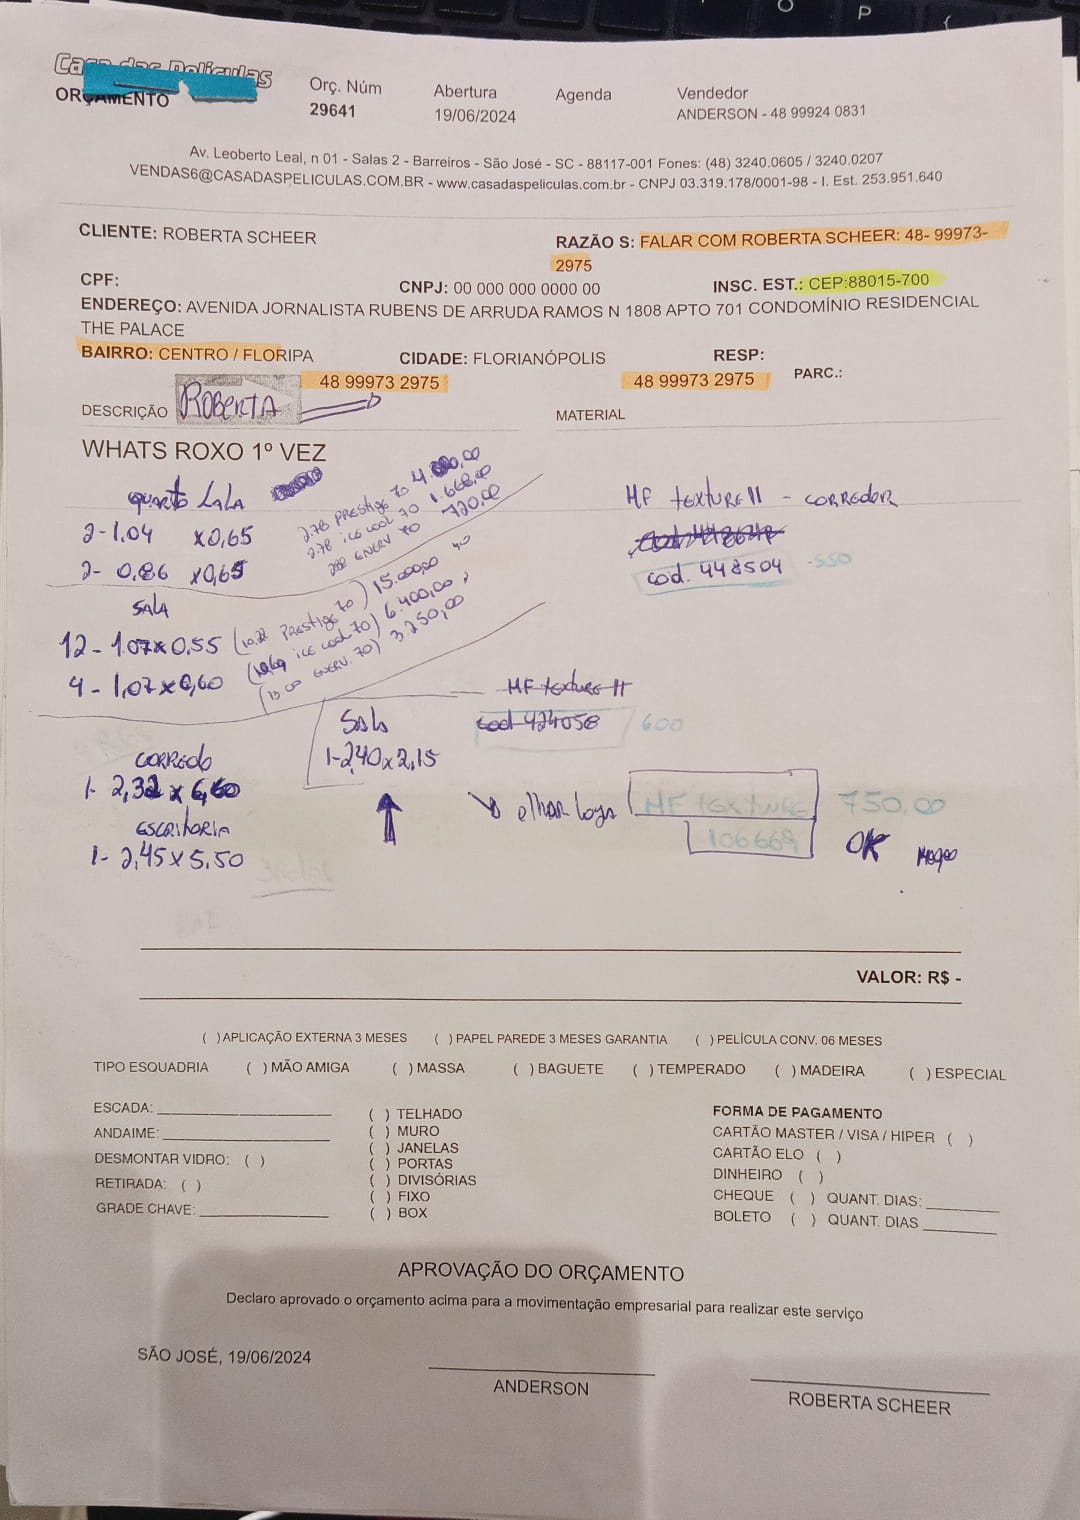 Casa das Películas
ORÇAMENTO
Orç. Núm
29641
Abertura
19/06/2024
Agenda
Vendedor
ANDERSON - 48 99924 0831
Av. Leoberto Leal, n 01 - Salas 2 - Barreiros - São José - SC - 88117-001 Fones: (48) 3240.0605 / 3240.0207
VENDAS6@CASADASPELICULAS.COM.BR - www.casadaspeliculas.com.br - CNPJ 03.319.178/0001-98 - I. Est. 253.951.640
CLIENTE: ROBERTA SCHEER
RAZÃO S: FALAR COM ROBERTA SCHEER: 48- 99973-
2975
CPF:
CNPJ: 00 000 000 0000 00
INSC. EST.: CEP:88015-700
ENDEREÇO: AVENIDA JORNALISTA RUBENS DE ARRUDA RAMOS N 1808 APTO 701 CONDOMÍNIO RESIDENCIAL
THE PALACE
BAIRRO: CENTRO / FLORIPA
CIDADE: FLORIANÓPOLIS
RESP:
48 99973 2975
48 99973 2975
PARC.:
DESCRIÇÃO ROBERTA
MATERIAL
WHATS ROXO 1º VEZ
quarto LALA
2-1.04 x0,65
2- 0.86 x0,65
2.78 PRESTIGE 70 4.000,00
2.78 ice cool 70 1.668,00
ENERV 70 720,00
MF texture II - CORREDOR
cod. 448504 -550
SALA
12- 1.07x0,55 (10.22 PRESTIGE 70) 15.000,00
4- 1,07x0,60 (ice cool 70) 6.400,00
(13.00 ENERV. 70) 3.250,00
MF texture II
cod 424058 600
SALA
1-2,40x2,15
CORREDO
1- 2,32 x 6,60
ESCRITORIA
1- 2,45 x 5,50
olhar loga MF texture 750.00
106669 OK
VALOR: R$ -
( ) APLICAÇÃO EXTERNA 3 MESES ( ) PAPEL PAREDE 3 MESES GARANTIA ( ) PELÍCULA CONV. 06 MESES
TIPO ESQUADRIA ( ) MÃO AMIGA ( ) MASSA ( ) BAGUETE ( ) TEMPERADO ( ) MADEIRA ( ) ESPECIAL
ESCADA:
ANDAIME:
DESMONTAR VIDRO: ( )
RETIRADA: ( )
GRADE CHAVE:
( ) TELHADO
( ) MURO
( ) JANELAS
( ) PORTAS
( ) DIVISÓRIAS
( ) FIXO
( ) BOX
FORMA DE PAGAMENTO
CARTÃO MASTER / VISA / HIPER ( )
CARTÃO ELO ( )
DINHEIRO ( )
CHEQUE ( ) QUANT. DIAS:
BOLETO ( ) QUANT. DIAS
APROVAÇÃO DO ORÇAMENTO
Declaro aprovado o orçamento acima para a movimentação empresarial para realizar este serviço
SÃO JOSÉ, 19/06/2024
ANDERSON
ROBERTA SCHEER